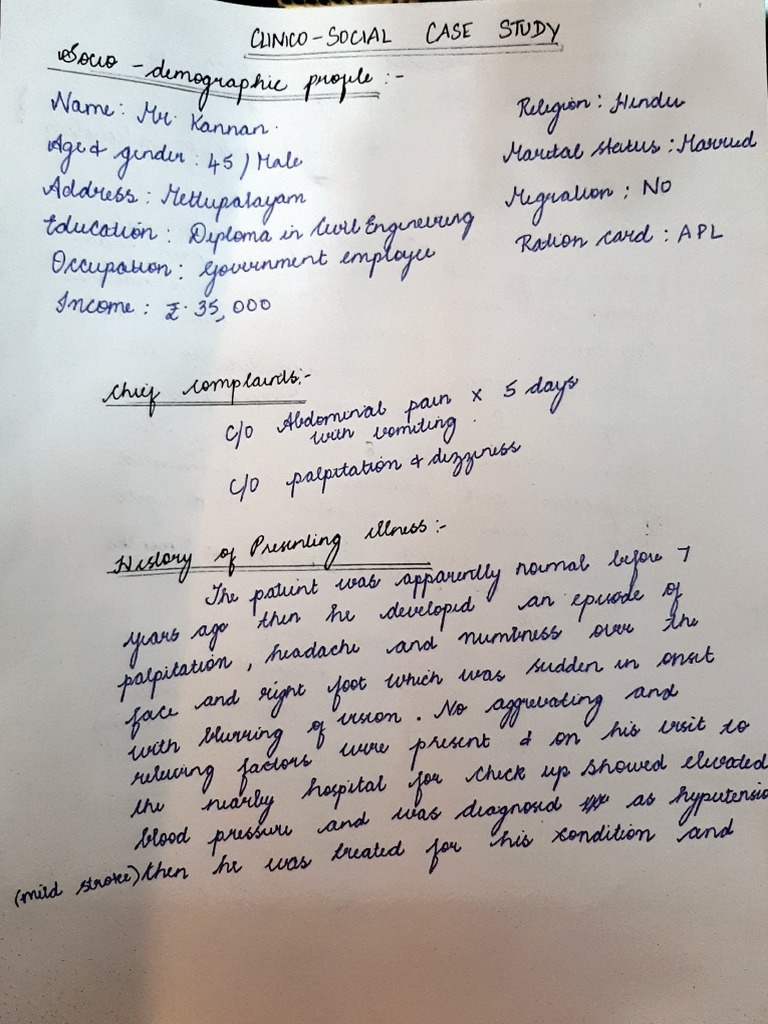 CLINICO-SOCIAL CASE STUDY
Socio-demographic profile :-
Name : Mr. Kannan.
Age & gender : 45 / Male
Address : Mettupalayam
Education : Diploma in Civil Engineering
Occupation : Government employee
Income : ₹. 35,000
Religion : Hindu
Marital status : Married
Migration : NO
Ration card : APL
Chief complaints:-
C/O Abdominal pain x 5 days
with vomiting.
C/O palpitation & dizziness
History of Presenting illness:-
The patient was apparently normal before 7
years ago then he developed an episode of
palpitation, headache and numbness over the
face and right foot which was sudden in onset
with blurring of vision. No aggrevating and
relieving factors were present & on his visit to
the nearby hospital for check up showed elevated
blood pressure and was diagnosed as hypertensio
(mild stroke) then he was treated for his condition and